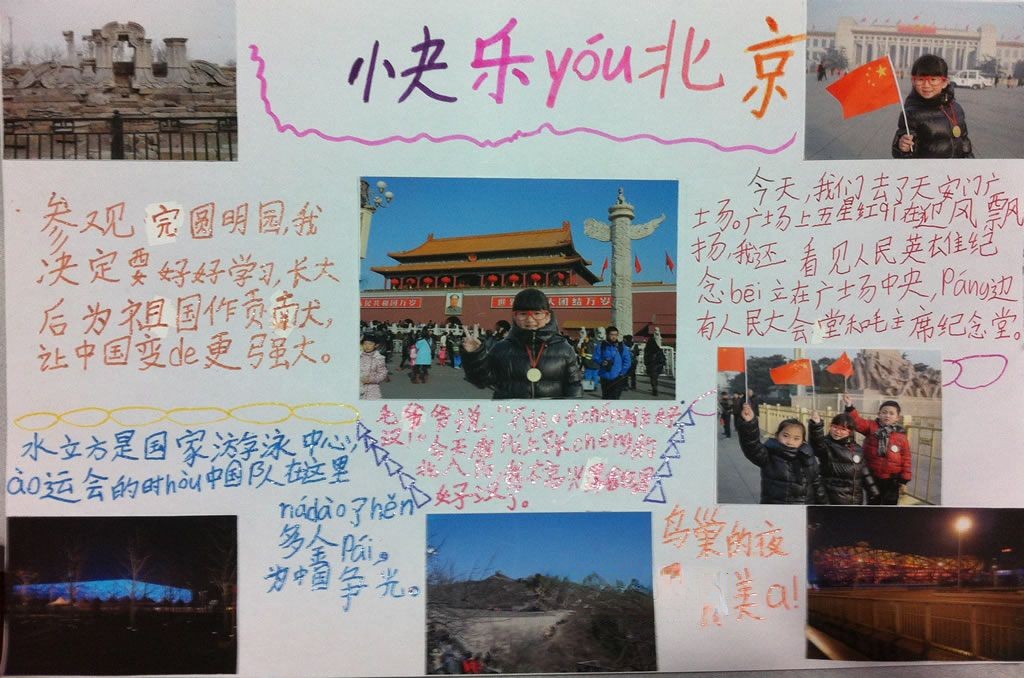 快乐yóu北京
参观完圆明园,我
决定要好好学习,长大
后为祖国作贡献,
让中国变de更强大。
今天,我们去了天安门广
场。广场上五星红qí在迎风飘
扬,我还看见人民英雄纪
念bēi立在广场中央,Páng边
有人民大会堂和毛主席纪念堂。
民共和国万岁
世界人民大团结万岁
毛爷爷说:"不到长chéng非好
汉!"
好汉了。
水立方是国家游泳中心,
ào运会的时hòu中国队在这里
nádào了hěn
多金Pái。
为中国争光。
鸟巢的夜
美a!